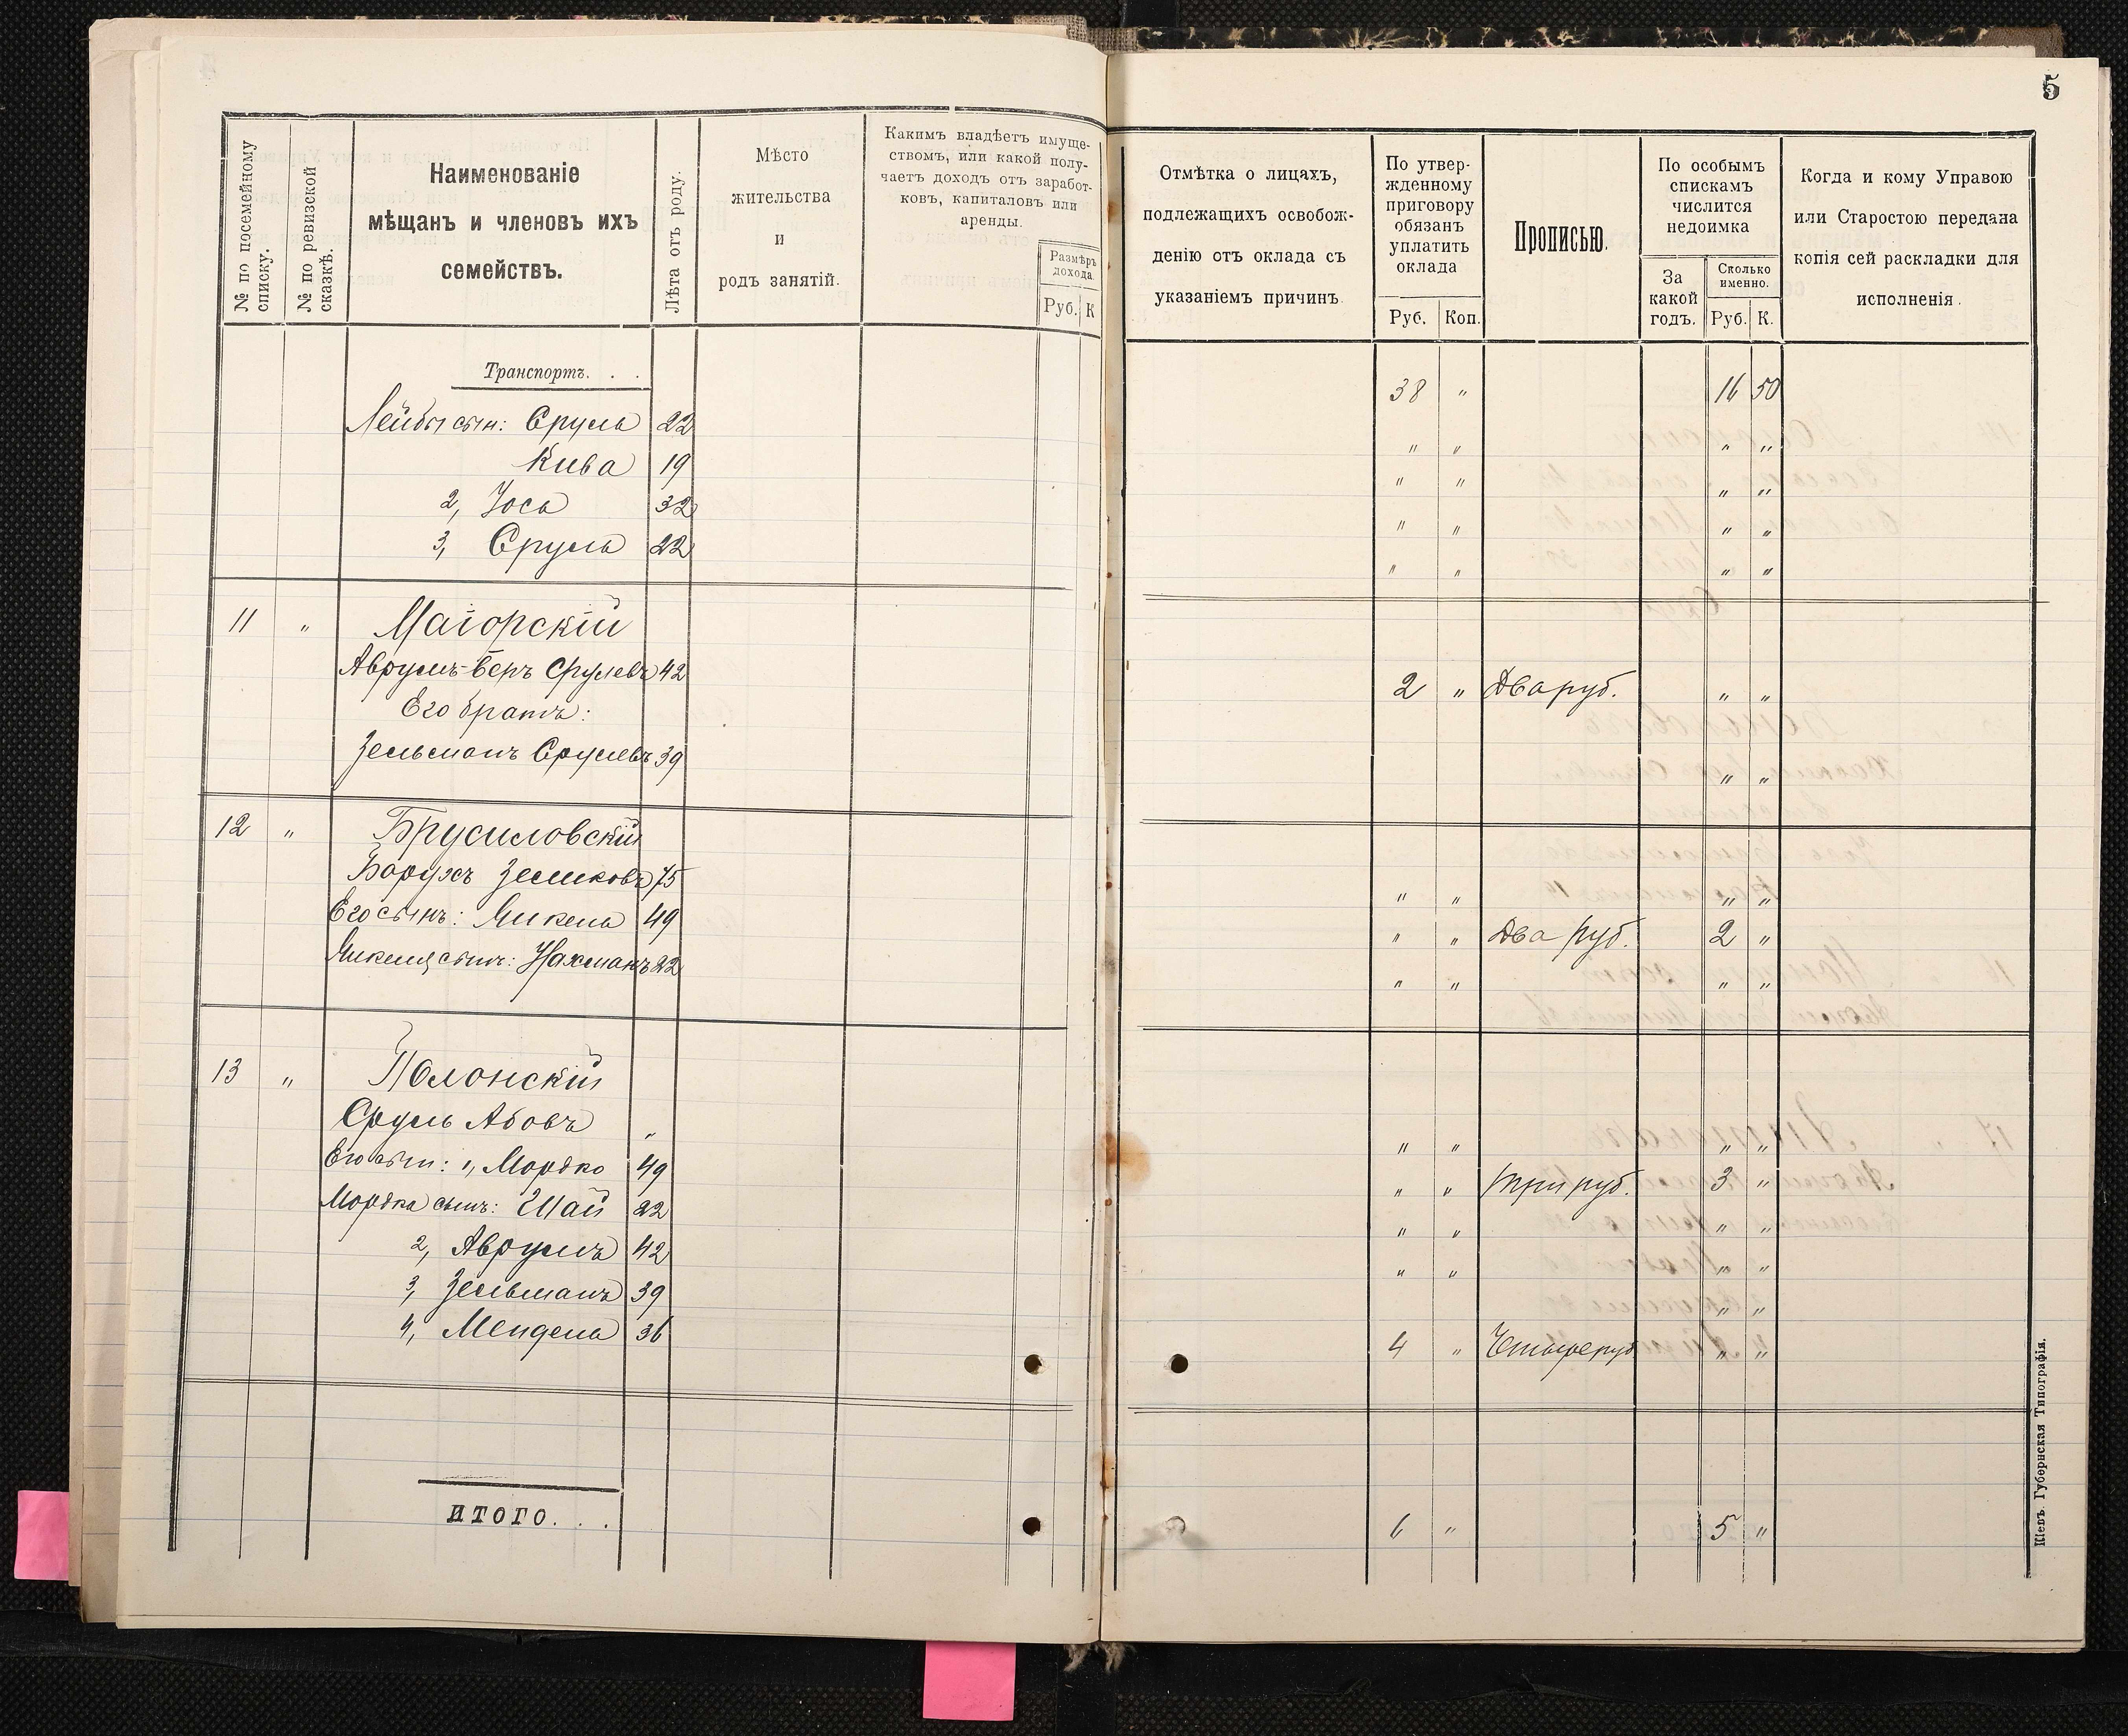 5
№ по посемейному списку.
№ по ревизской сказкѣ.
Наименованіе
мѣщанъ и членовъ ихъ
семействъ.
Лѣта отъ роду.
Мѣсто
жительства
и
родъ занятій.
Какимъ владѣетъ имуще-
ствомъ, или какой полу-
чаетъ доходъ отъ заработ-
ковъ, капиталовъ или
аренды.
Размѣръ
дохода.
Руб. К
Отмѣтка о лицахъ,
подлежащихъ освобож-
денію отъ оклада съ
указаніемъ причинъ.
По утвер-
жденному
приговору
обязанъ
уплатить
оклада
Руб. Коп.
Прописью.
По особымъ
спискамъ
числится
недоимка
За
какой
годъ.
Сколько
именно.
Руб. К.
Когда и кому Управою
или Старостою передана
копія сей раскладки для
исполненія.
Транспортъ. . . 38 " 16 50
Лейбы сын: Сруль 22 " " " "
Кива 19 " " " "
2, Йось 32 " " " "
3, Сруль 22 " " " "
11 " Маіорскій
Аврумъ-Беръ Срулевъ 42 2 " Два руб. " "
Его братъ:
Зельманъ Срулевъ 39 " "
12 " Брусиловскій
Борухъ Зеликовъ 75 " " " "
Его сынъ: Микель 49 " " Два руб. 2 "
Микеля сынъ: Нахманъ 22 " " " "
13 " Полонскій
Сруль Абовъ " " " " "
Его сын: 1, Мордко 49 " " Три руб. 3 "
Мордка сынъ: Шай 22 " " " "
2, Аврумъ 42 " " " "
3, Зельманъ 39 " "
4, Мендель 36 4 " Четыре руб " "
ИТОГО. . . 6 " 5 "
Кіевъ. Губернская Типографія.